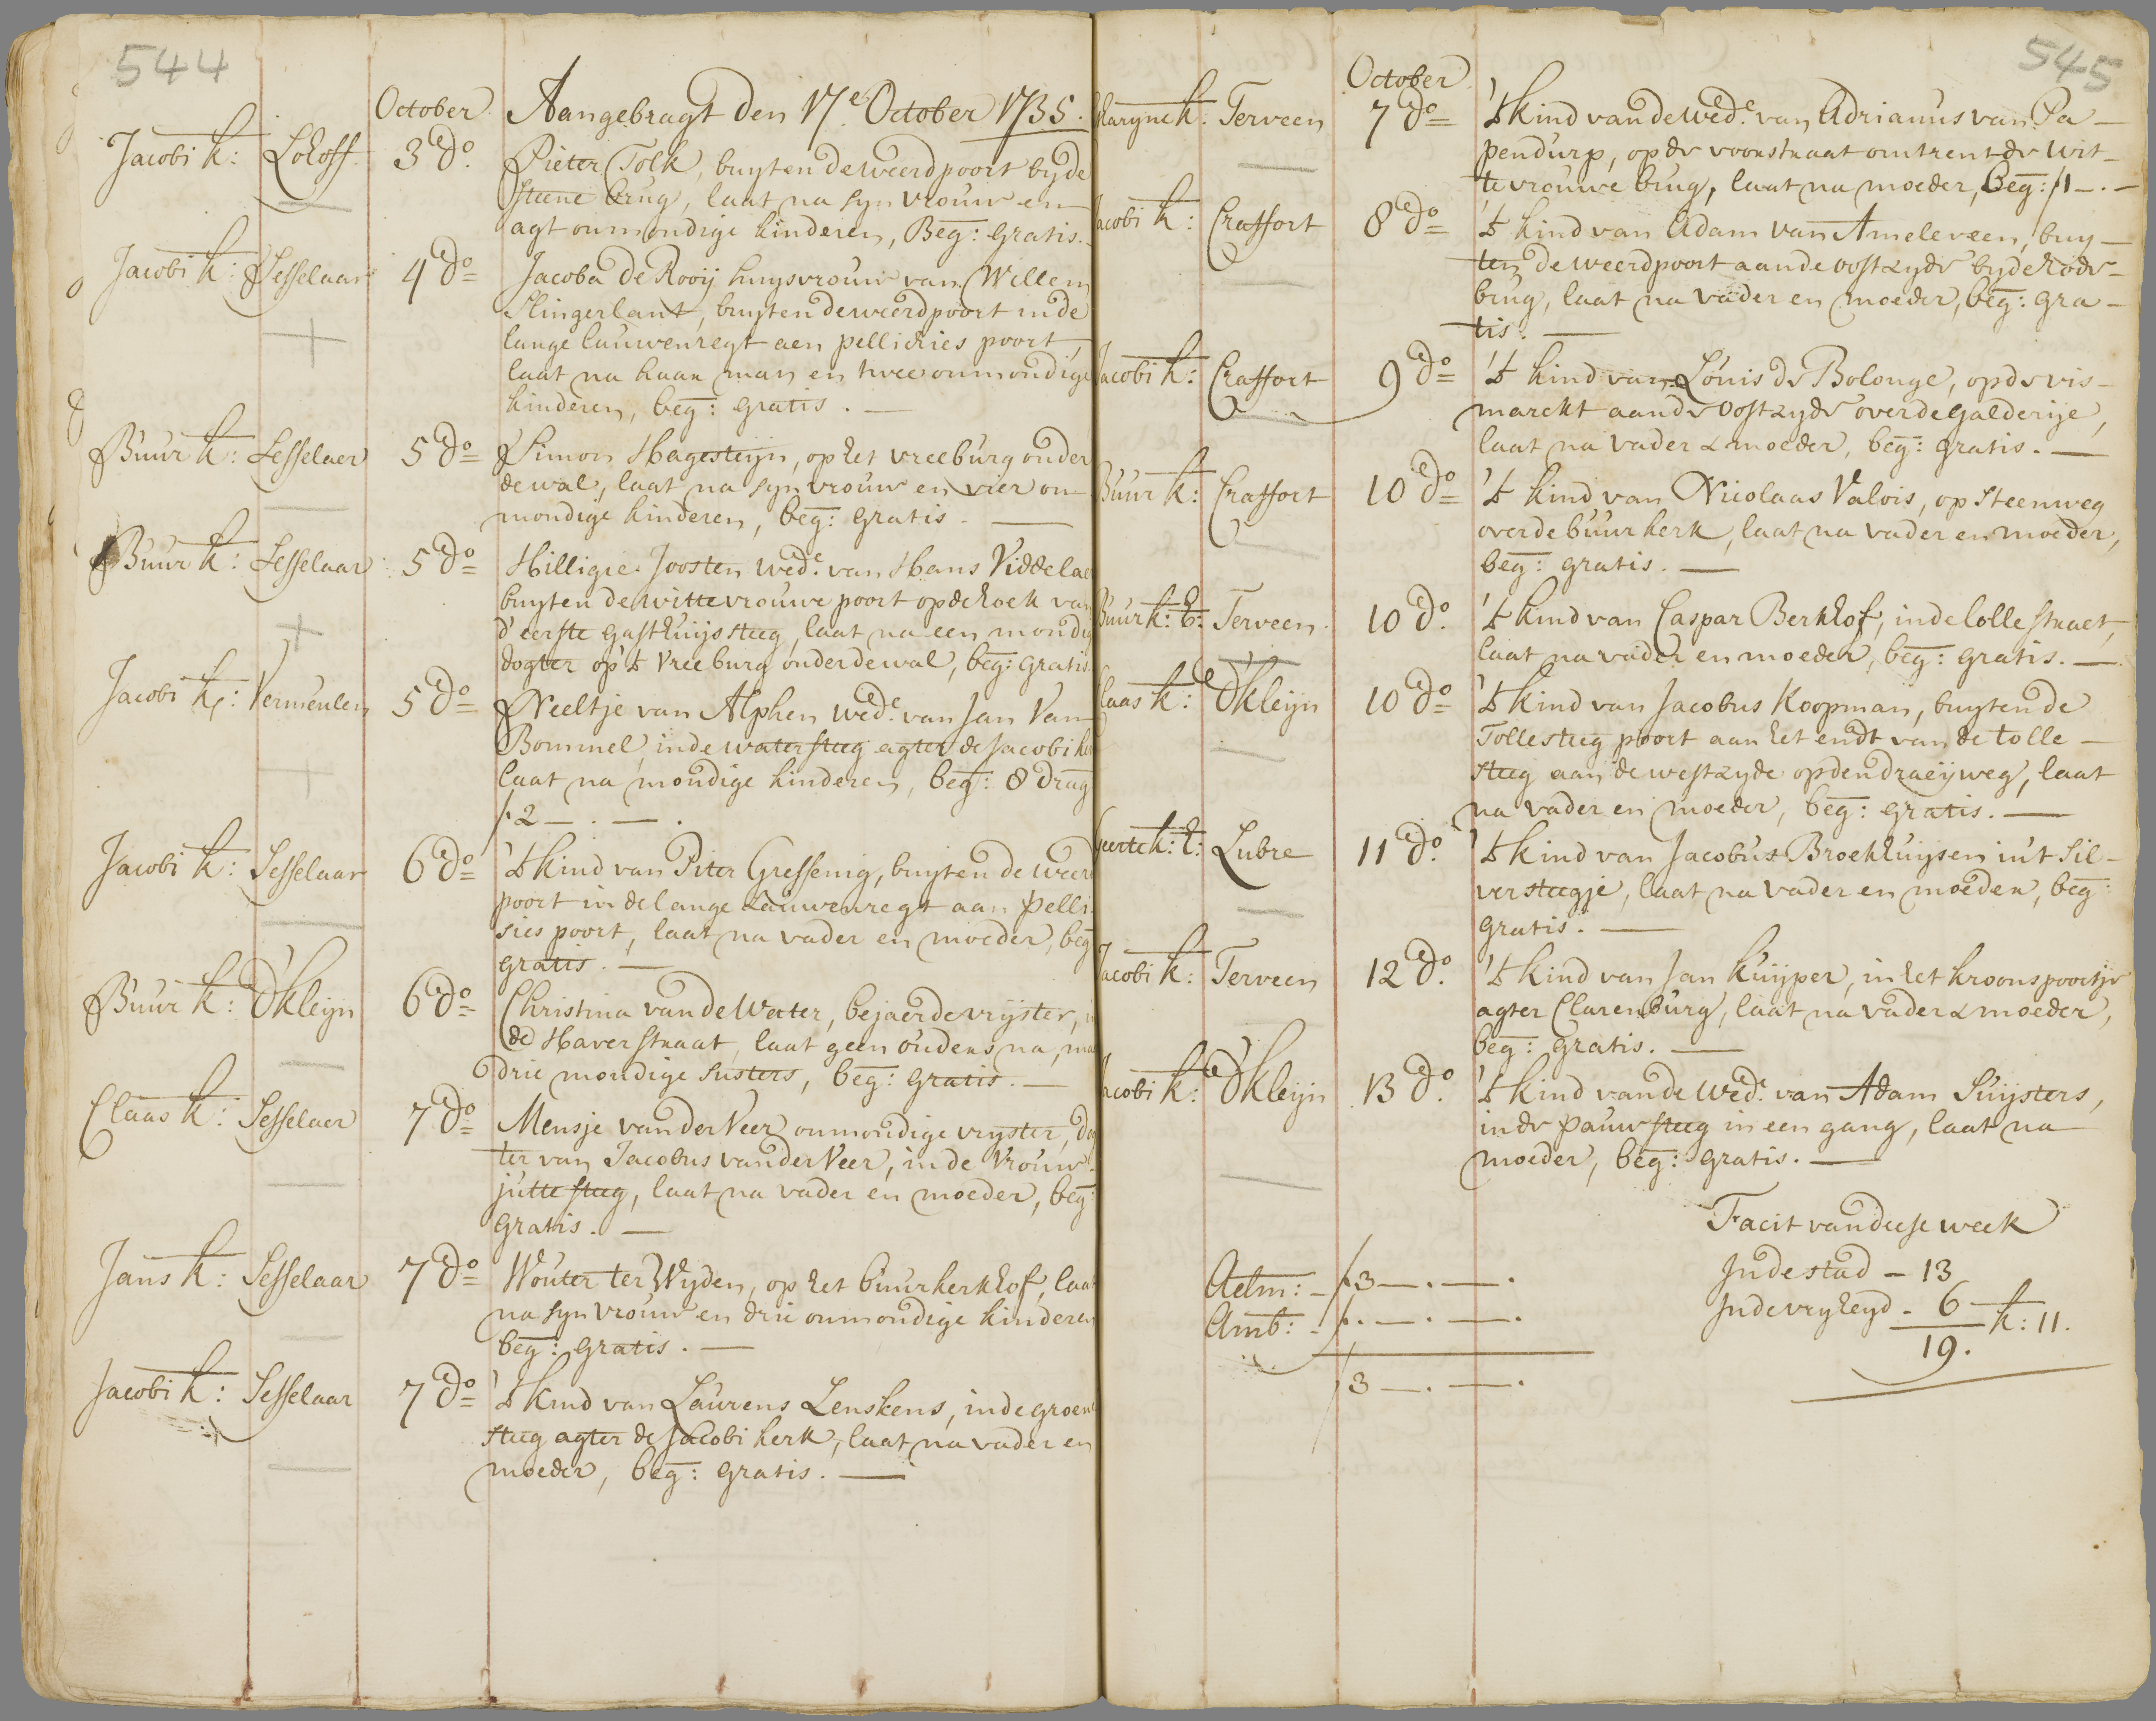 544
October Aangebragt den 17e October 1735.
Jacobi k: Lokoff. 3 do. Pieter Tolk, buyten de weerdpoort byde
steene brug, laat na syn vrouw en
agt onmondige kinderen, Beg: gratis.
Jacobi k: Sesselaar 4 do Jacoba De Rooij huysvrouw van Willem
Slingerlant, buyten de weerdpoort inde
lange lauwenregt aen pellickies poort,
laat na haar man en twee onmondige
kinderen, beg: gratis. —
Buur k: Sesselaer 5 do Simon Hagesteijn, op het vreeburg onder
de wal, laat na syn vrouw en vier on-
mondige kinderen, beg: gratis. —
Buur k: Sesselaar 5 do Hilligie Joosten wede. van Hans Viddelaer
buyten de witte vrouwe poort op de hoek van
d'eerste gasthuijs steeg, laat na een mondig
dogter op 't vreeburg onder de wal, beg: gratis.
Jacobi k: Vermeulen 5 do Neeltje van Alphen wede. van Jan Van
Bommel, inde watersteeg agter de Jacobi ker
laat na mondige kinderen, beg: 8 drag
f 2 — . — .
Jacobi k: Sesselaar 6 do 't kind van Piter Gressenig, buyten de weerd
poort in de lange Lauwenregt aan pelli
sies poort, laat na vader en moeder, beg
gratis. —
Buur k: D'kleijn 6 do Christina van de Water, bejaerde vryster, in
de Haverstraat, laat geen ouders na, maa
drie mondige susters, beg: gratis. —
Claas k: Sesselaer 7 do Mensje van der Veer onmondige vryster, dog
ter van Jacobus van der Veer, in de Vrouw-
jutte steeg, laat na vader en moeder, beg:
gratis. —
Jans k: Sesselaar 7 do Wouter ter Wyden, op het buurkerkhof, laat
na syn vrouw en drie onmondige kinderen
beg: gratis. —
Jacobi k: Sesselaar 7 do 't kind van Laurens Lenskens, in de groene
steeg agter de Jacobi kerk, laat na vader en
moeder, beg: gratis. —
545
October
Maryne k: Terveen 7 do 't kind van de wede. van Adrianus van Pa-
pendurp, op de voorstraat omtrent de wit-
te vrouwe brug, laat na moeder, Beg: f1 — . —
Jacobi k: Craffort 8 do 't kind van Adam van Ameleveen, buy-
ten de weerdpoort aan de oostzyde by de rode-
brug, laat na vader en moeder, beg: gra-
tis. —
Jacobi k: Craffort 9 do 't kind van Louis de Bolonge, op de vis-
marckt aan de oostzyde over de galderije,
laat na vader & moeder, beg: gratis. —
Buur k: Craffort 10 do 't kind van Nicolaas Valois, op steenweg
over de buurkerk, laat na vader en moeder,
beg: gratis. —
Buur k: E: Terveen 10 do. 't kind van Caspar Berkhof, in de lollestraet,
laat na vader en moeder, beg: gratis. —
Claas k: D'kleijn 10 do 't kind van Jacobus Koopman, buyten de
Tollesteeg poort aan het endt van de tolle-
steeg aan de westzyde op den draeijweg, laat
na vader en moeder, beg: gratis. —
Geerte k: E: Lubre 11 do. 't kind van Jacobus Broekhuijsen in't Sil-
versteegje, laat na vader en moeder, beg:
gratis. —
Jacobi k: Terveen 12 do. 't kind van Jan Kuijper, in het kroonspoortje
agter Clarenburg, laat na vader & moeder,
beg: gratis. —
Jacobi k: D'kleijn 13 do. 't kind van de wede. van Adam Suijsters,
in de pauwsteeg in een gang, laat na
moeder, beg: gratis. —
Facit van deese week
Aelm: - f3 — . — . In de stad - 13
Amb: - f. — . — . In de vryheyd - 6 k: 11.
19.
f3 — . — .